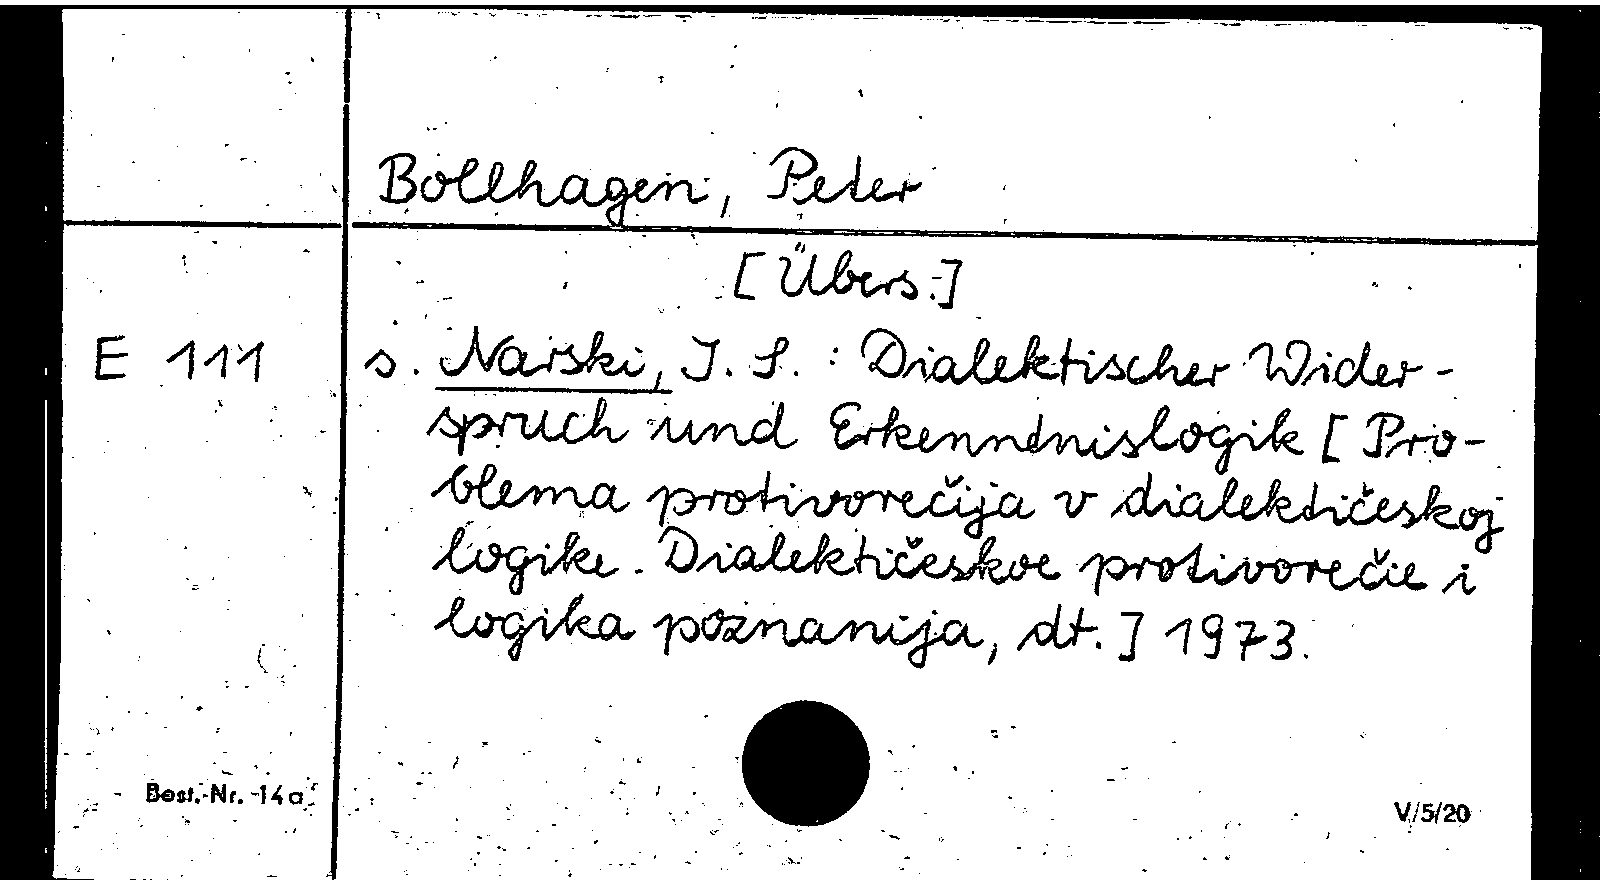 Bollhagen, Peter
[Übers.]
E 111 s. Narski, I. S. : Dialektischer Wider-
spruch und Erkenntnislogik [Pro-
blema protivorečija v dialektičeskoj
logike. Dialektičeskoe protivorečie i
logika poznanija, dt.] 1973.
Best.-Nr. 14a
V/5/20